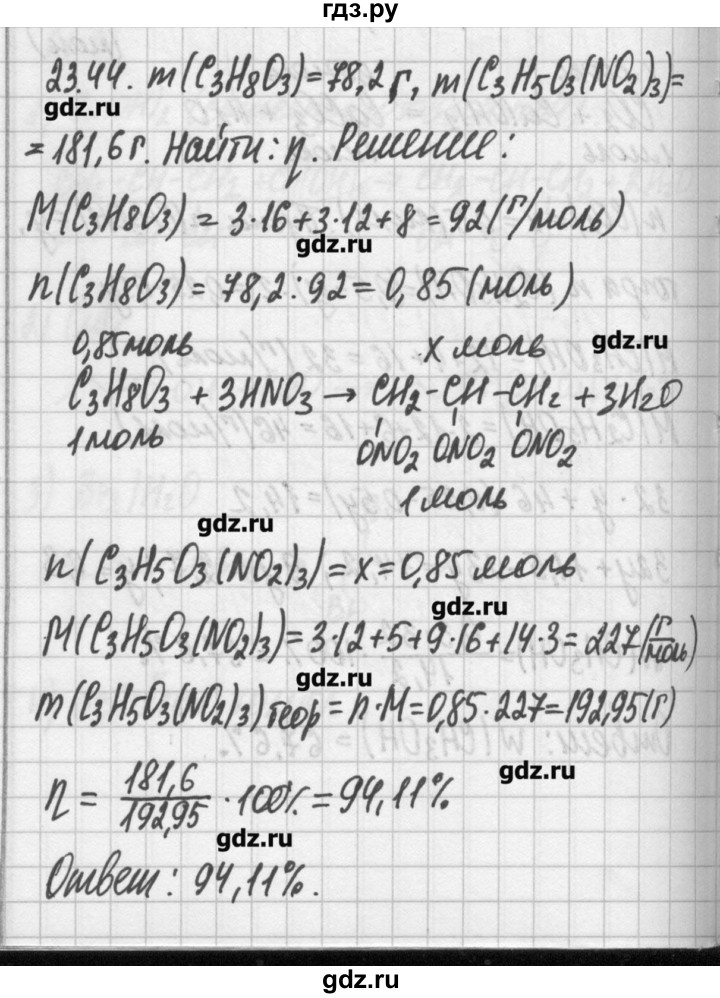 гдз.ру
23.44. m(C₃H₈O₃)=78,2г, m(C₃H₅O₃(NO₂)₃)=
gdz.ru
=181,6г. Найти: η. Решение:
M(C₃H₈O₃) = 3·16+3·12+8=92(г/моль)
gdz.ru
n(C₃H₈O₃)=78,2:92=0,85(моль)
0,85моль x моль gdz.ru
C₃H₈O₃ + 3HNO₃ → CH₂-CH-CH₂ + 3H₂O
1моль ONO₂ ONO₂ ONO₂
1моль
gdz.ru
n(C₃H₅O₃(NO₂)₃)=x=0,85моль
gdz.ru
M(C₃H₅O₃(NO₂)₃)=3·12+5+9·16+14·3=227(г/моль)
gdz.ru
m(C₃H₅O₃(NO₂)₃)теор=n·M=0,85·227=192,95(г)
gdz.ru
η = 181,6/192,95 ·100%=94,11%
gdz.ru
Ответ: 94,11%.
gdz.ru